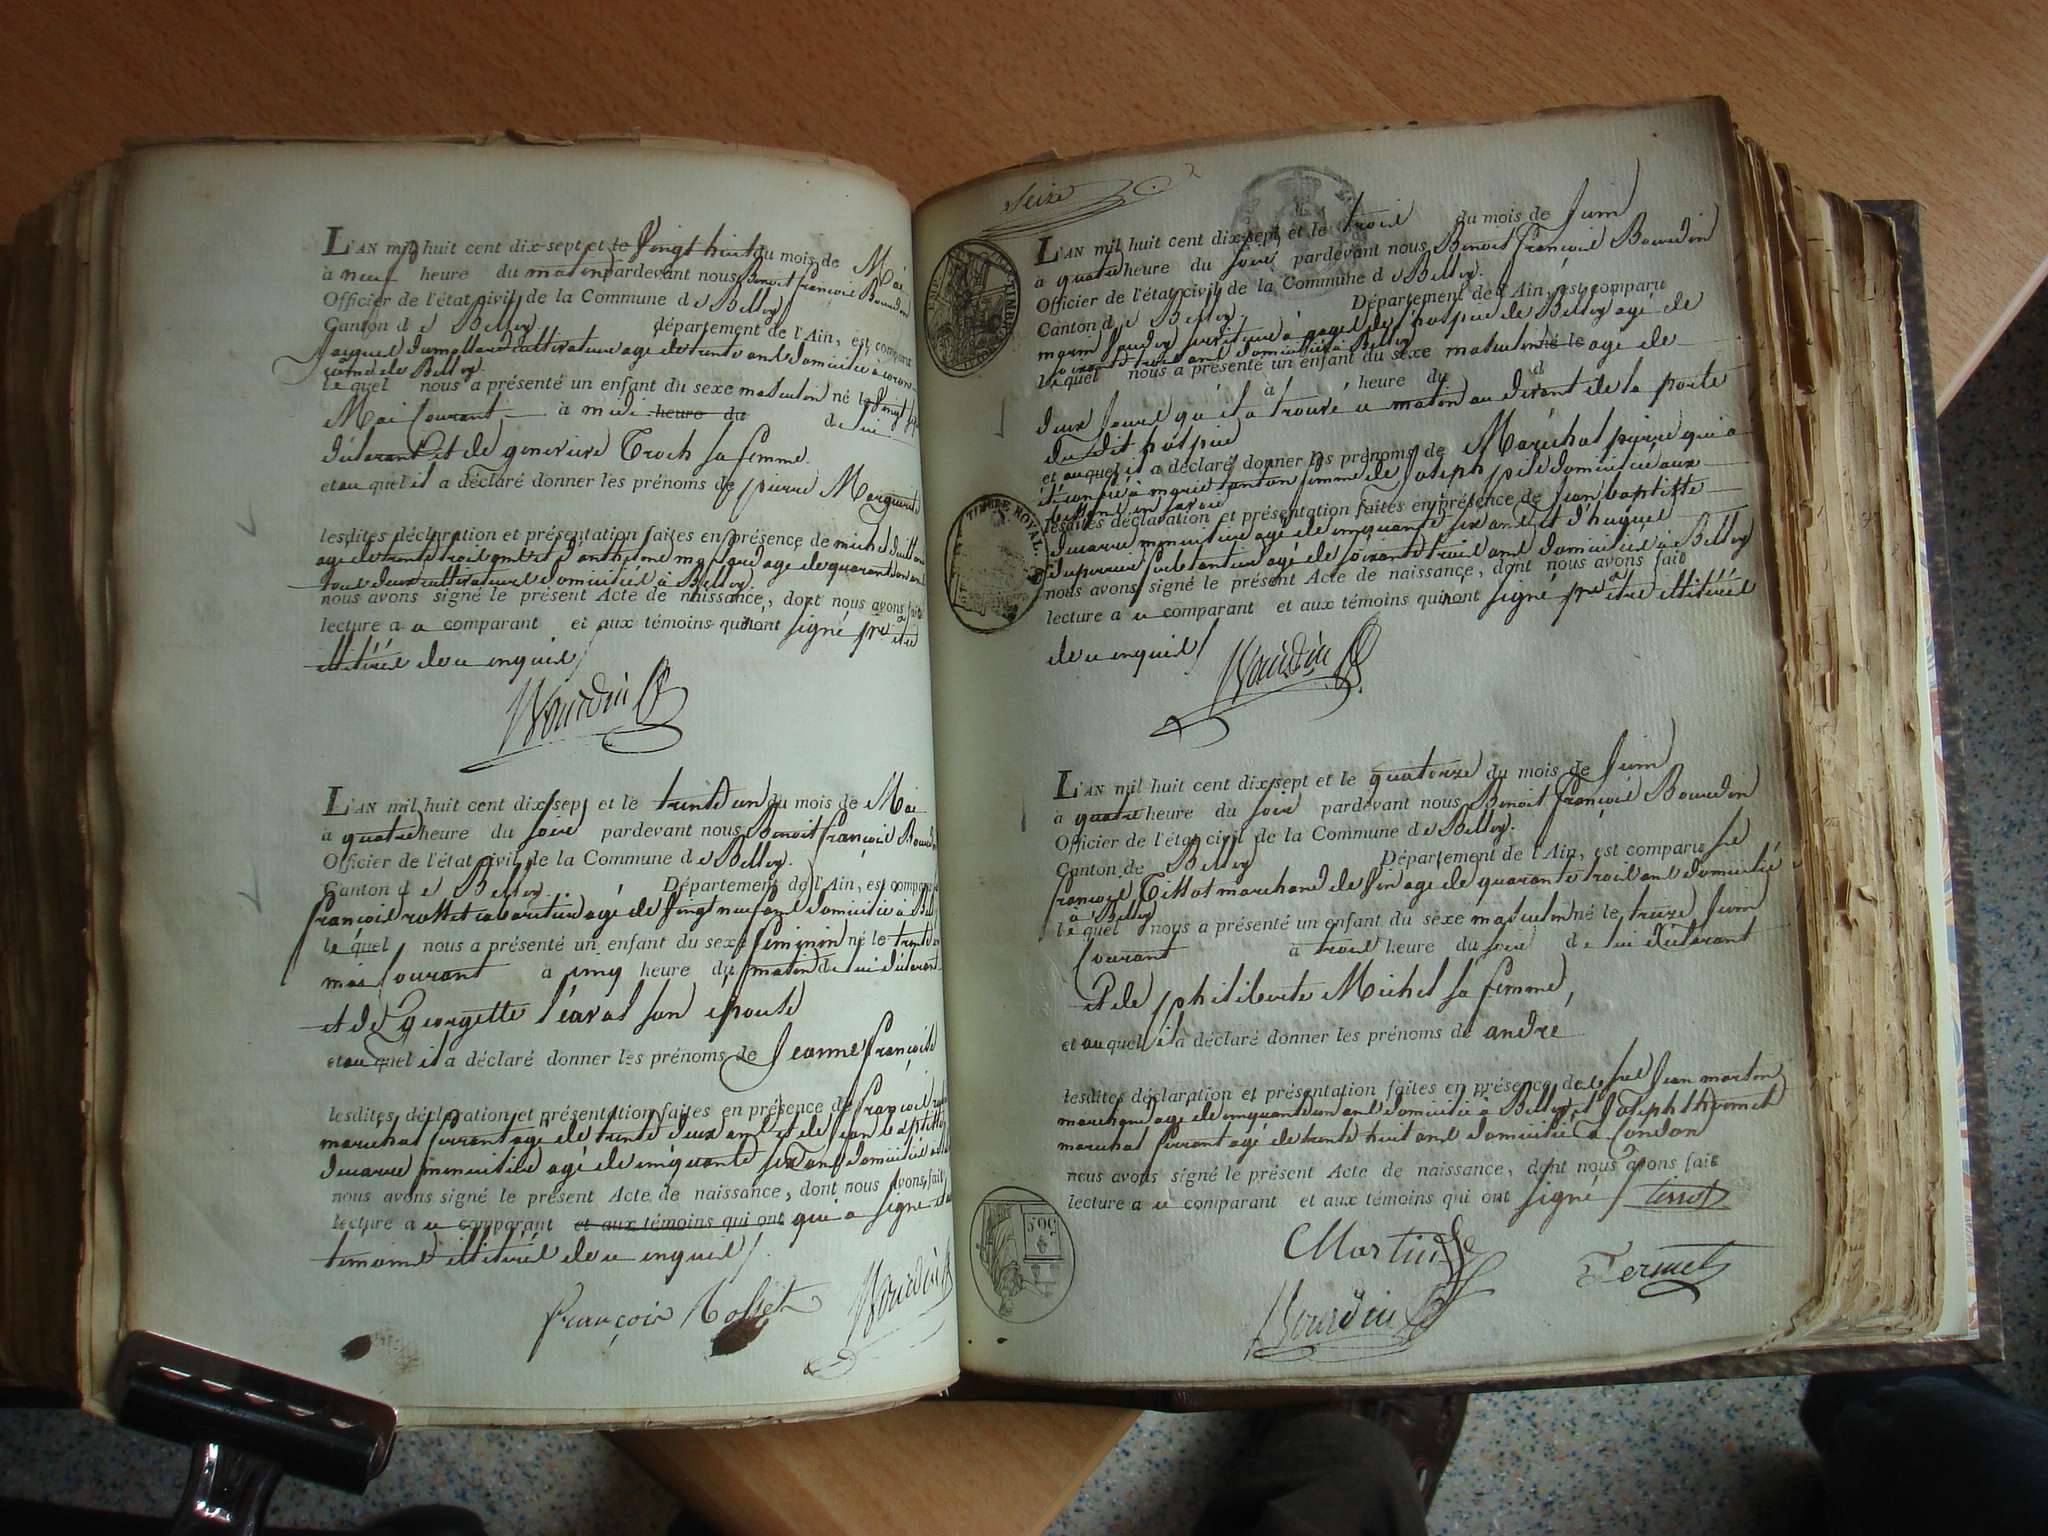 L'AN mil huit cent dix-sept et le vingt huit du mois de Mai
à neuf heure du matin pardevant nous Benoit françois Bourdin
Officier de l'état civil de la Commune de Belley
Canton de Belley département de l'Ain, est comparu
jacques cultivateur agé de trente ans domicilié à
de Belley
lequel nous a présenté un enfant du sexe masculin né le vingt sept
Mai courant à midi heure du de lui
déclarant et de genevieve Troch sa femme.
et auquel il a déclaré donner les prénoms de pierre Marguerite
lesdites déclaration et présentation faites en présence de michel
agé de trente trois ans et d'anthelme agé de quarante un ans
tous deux cultivateurs domiciliés à Belley.
nous avons signé le présent Acte de naissance, dont nous avons fait
lecture a ce comparant et aux témoins qui n'ont signé pr etre
illitérés de ce enquis
Bourdin
L'AN mil huit cent dix-sept et le trente un du mois de Mai
à quatre heure du soir pardevant nous Benoit françois Bourdin
Officier de l'état civil de la Commune de Belley.
Canton de Belley Département de l'Ain, est comparu
françois rosset cabaretier agé de vingt neuf ans domicilié à Belley
lequel nous a présenté un enfant du sexe feminin né le trente un
mai courant à cinq heure du matin de lui déclarant
et de georgette son epouse
et auquel il a déclaré donner les prénoms de Jeanne françoise
lesdites déclaration et présentation faites en présence de françois
marechal ferrant agé de trente deux ans et de jean baptiste
ducarre menuisier agé de cinquante six ans domiciliés à
nous avons signé le présent Acte de naissance, dont nous avons fait
lecture a ce comparant et aux témoins qui ont qui a signé et
temoins illitérés de ce enquis
françois Rosset Bourdin
Seize
L'AN mil huit cent dix-sept, et le trois du mois de Juin
à quatre heure du soir pardevant nous Benoit françois Bourdin
Officier de l'état civil de la Commune de Belley.
Canton de Belley. Département de l'Ain, est comparu
marin à gages de l'hospice de Belley agé de
soixante trois ans domicilié à Belley
lequel nous a présenté un enfant du sexe masculin né le agé de
à heure du d
deux jours qu'il a trouvé ce matin au devant de la porte
du dit hospice
et auquel il a déclaré donner les prénoms de Maréchal pierre qui a
été confié à marie femme de Joseph domicilié aux
en savoie
lesdites déclaration et présentation faites en présence de jean baptiste
ducarre menuisier agé de cinquante six ans et d'hugues
duperron agé de soixante trois ans domiciliés à Belley
nous avons signé le présent Acte de naissance, dont nous avons fait
lecture a ce comparant et aux témoins qui n'ont signé pr etre illitérés
de ce enquis
Bourdin
L'AN mil huit cent dix-sept et le quatorze du mois de Juin
à quatre heure du soir pardevant nous Benoit françois Bourdin
Officier de l'état civil de la Commune de Belley.
Canton de Belley Département de l'Ain, est comparu
françois Tissot marchand agé de quarante trois ans domicilié
à Belley
lequel nous a présenté un enfant du sexe masculin né le treize Juin
courant à trois heure du soir de lui déclarant
et de philiberte Michel sa femme,
et auquel il a déclaré donner les prénoms de andré
lesdites déclaration et présentation faites en présence de Jean
marchand agé de cinquante un ans domicilié à Belley, et Joseph
marechal ferrant agé de trente huit ans domicilié à
nous avons signé le présent Acte de naissance, dont nous avons fait
lecture a ce comparant et aux témoins qui ont signé Tissot
Martin
Bourdin
TIMBRE ROYAL
50 C